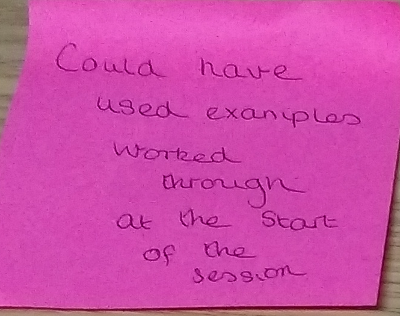 Could have
used examples
worked
through
at the start
of the
session